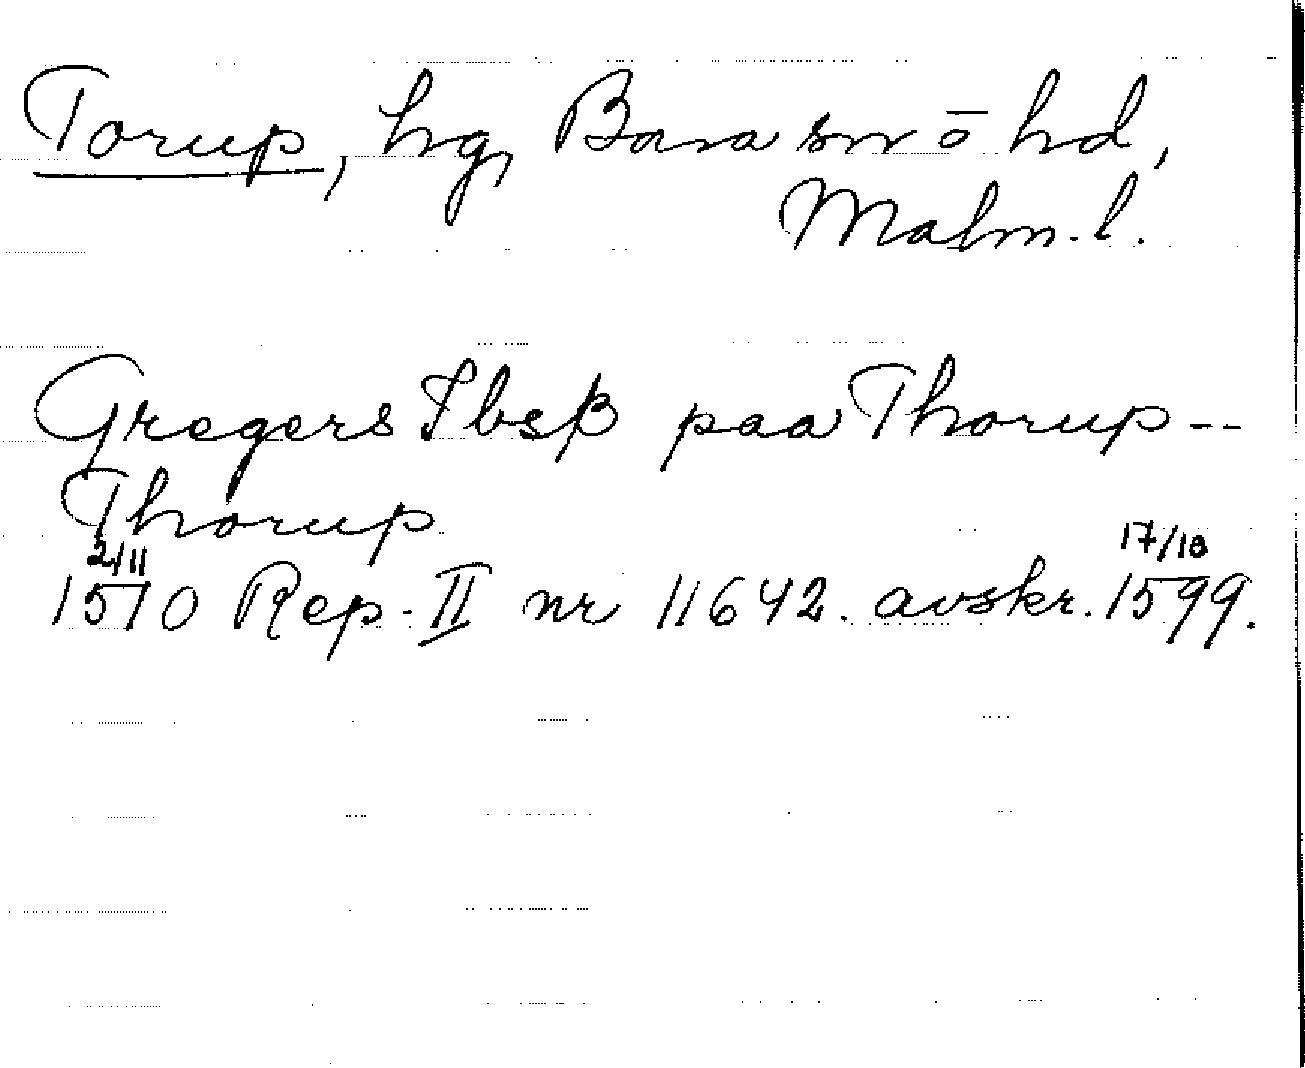 Torup, hg, Bara sn o hd,
Malm. l.
Gregers Ibsß paa Thorup --
Thorup
2/11 17/10
1510 Rep. II nr 11642. avskr. 1599.